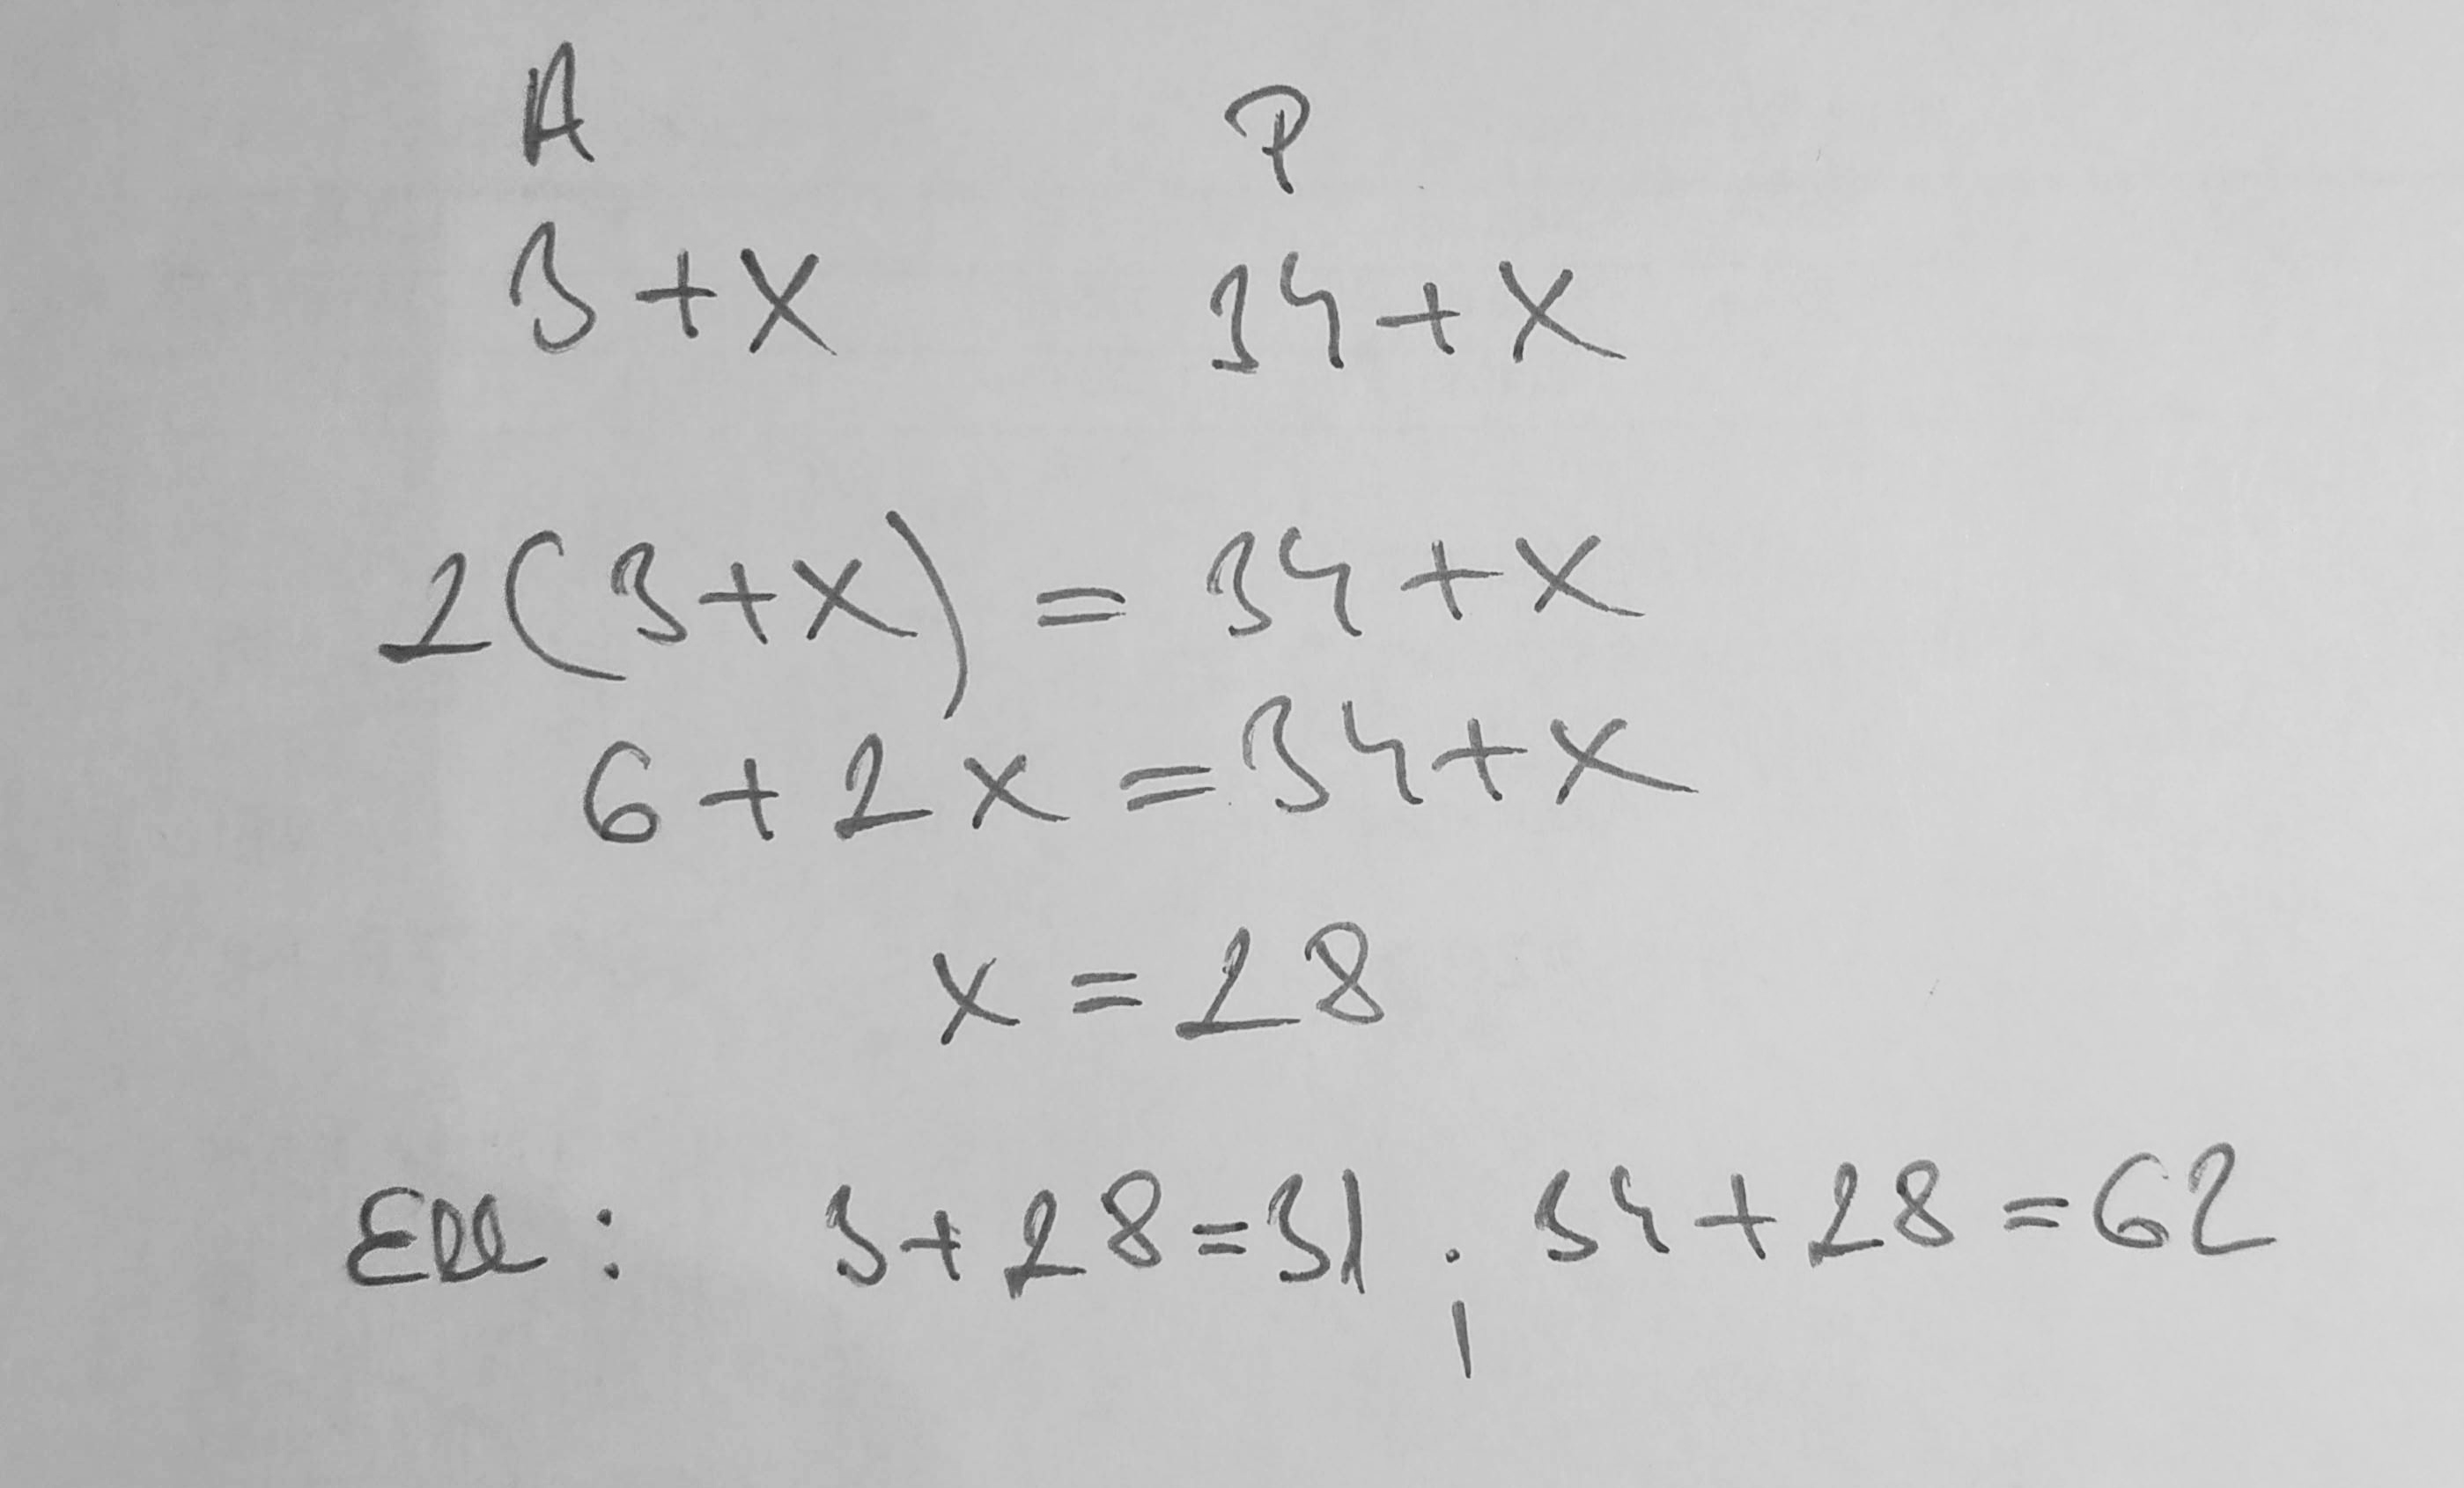 A P
3+x 34+x
2(3+x) = 34+x
6+2x=34+x
x=28
Ell: 3+28=31; 34+28=62